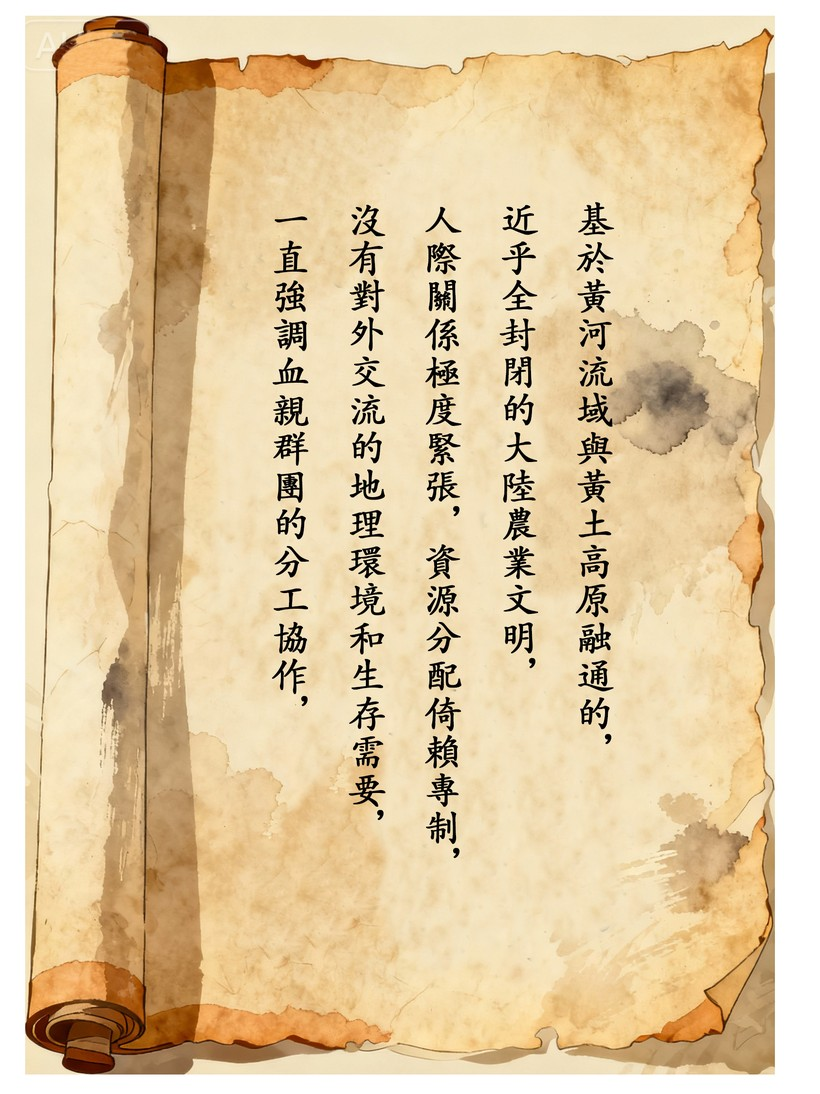 基於黃河流域與黃土高原融通的，
近乎全封閉的大陸農業文明，
人際關係極度緊張，資源分配倚賴專制，
沒有對外交流的地理環境和生存需要，
一直強調血親群團的分工協作，